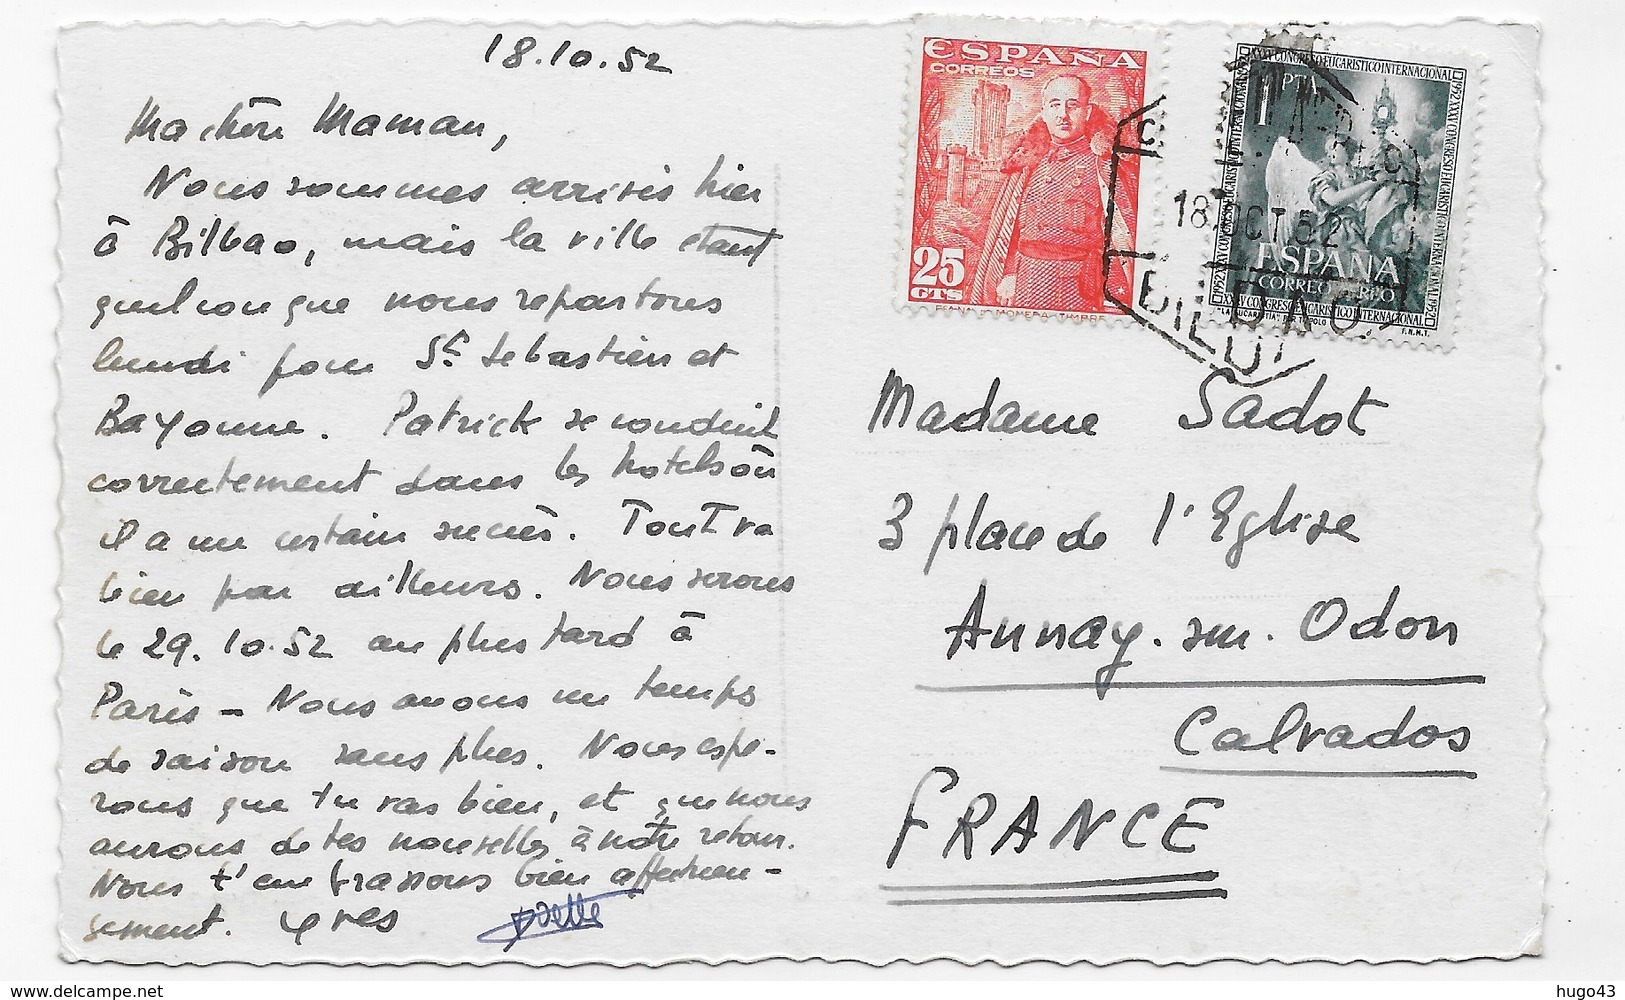 18.10.52
Ma chère Maman,
Nous sommes arrivés hier
à Bilbao, mais la ville étant
quelconque nous repartons
lundi pour St Sebastien et
Bayonne. Patrick se conduit
correctement dans les hotels où
il a un certain succès. Tout va
bien par ailleurs. Nous serons
le 29.10.52 au plus tard à
Paris - Nous avons un temps
de saison sans plus. Nous espé-
rons que tu vas bien, et que nous
aurons de tes nouvelles à notre retour.
Nous t'embrassons bien affectueu-
sement. Yves
Yvette
ESPAÑA
CORREOS
25
CTS
XXXV CONGRESO EUCARISTICO INTERNACIONAL
1952
1 PTA
ESPAÑA
CORREO AEREO
F.N.M.T.
18 OCT 52
BILBAO
Madame Sadot
3 place de l'Eglise
Aunay-sur-Odon
Calvados
FRANCE
delcampe.net
hugo43